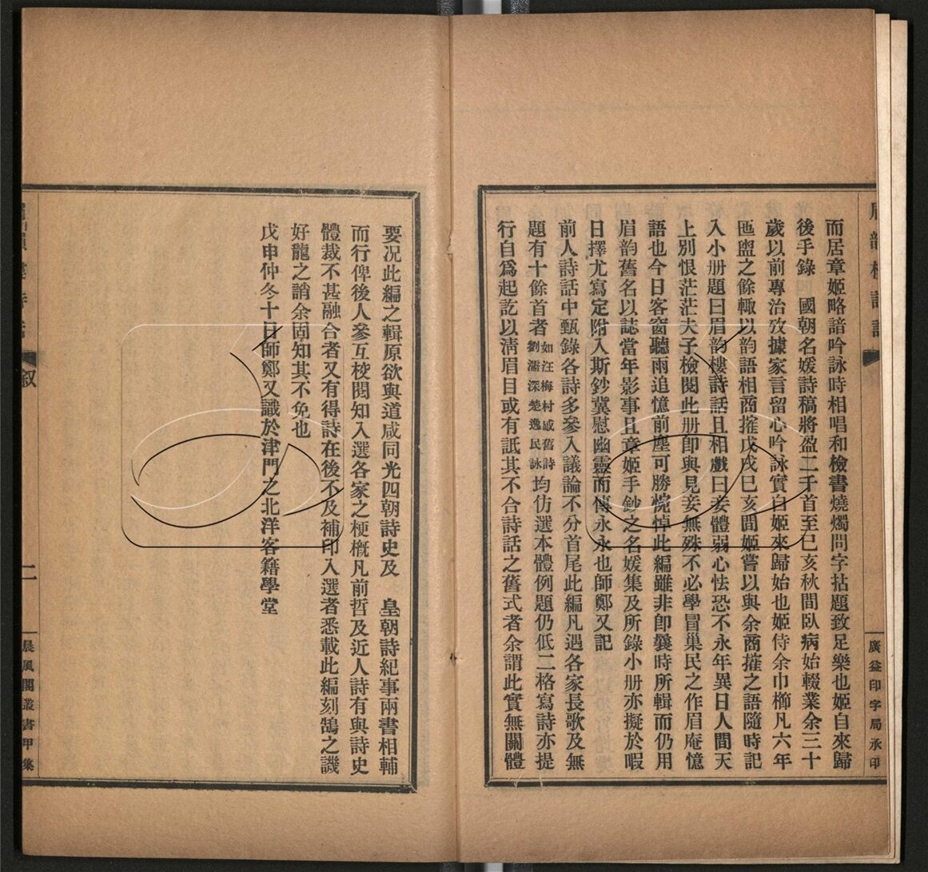 而居章姬略諳吟詠時相唱和檢書燒燭問字拈題致足樂也姬自來歸
後手錄　國朝名媛詩稿將盈二千首至己亥秋間臥病始輟業余三十
歲以前專治攷據家言留心吟詠實自姬來歸始也姬侍余巾櫛凡六年
匜盥之餘輒以韵語相商搉戊戌己亥間姬嘗以與余商搉之語隨時記
入小册題曰眉韵樓詩話且相戲曰妾體弱心怯恐不永年異日人間天
上別恨茫茫夫子檢閱此册卽與見妾無殊不必學冒巢民之作眉庵憶
語也今日客窗聽雨追憶前塵可勝惋悼此編雖非卽曩時所輯而仍用
眉韵舊名以誌當年影事且章姬手鈔之名媛集及所錄小册亦擬於暇
日擇尤寫定附入斯鈔冀慰幽靈而傳永永也師鄭又記
前人詩話中甄錄各詩多參入議論不分首尾此編凡遇各家長歌及無
題有十餘首者如汪梅村感舊詩劉濡深楚逸民詠均仿選本體例題仍低二格寫詩亦提
行自爲起訖以淸眉目或有詆其不合詩話之舊式者余謂此實無關體
廣益印字局承印
要況此編之輯原欲與道咸同光四朝詩史及　皇朝詩紀事兩書相輔
而行俾後人參互校閱知入選各家之梗槪凡前哲及近人詩有與詩史
體裁不甚融合者又有得詩在後不及補印入選者悉載此編刻鵠之譏
好龍之誚余固知其不免也
戊申仲冬十日師鄭又識於津門之北洋客籍學堂
叙
二
晨風閣叢書甲集